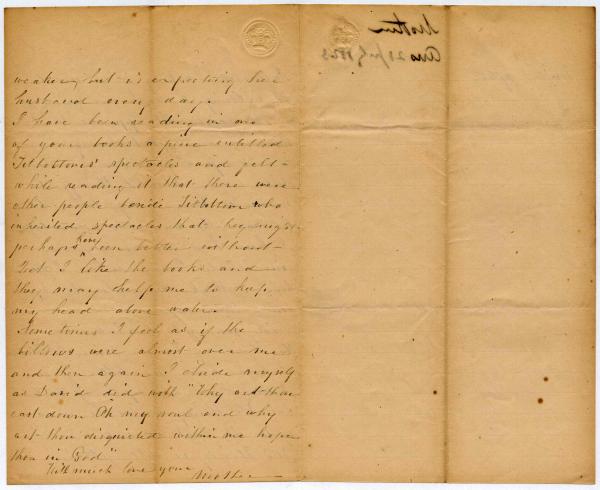 weaker, but is expecting her
husband every day.
I have been reading in one
of your books a piece entitled
Titbottom's spectacles and felt
while reading it that there were
other people beside Titbottom who
inherited spectacles that they might
perhaps have been better without—
But I like the books and
they may help me to keep
my head above water.
Sometimes I feel as if the
billows were almost over me
and then again I chide myself
as David did with "Why art thou
cast down Oh my soul and why
art thou disquieted within me hope
thou in God"
With much love your
Mother
Mother
Ans 2